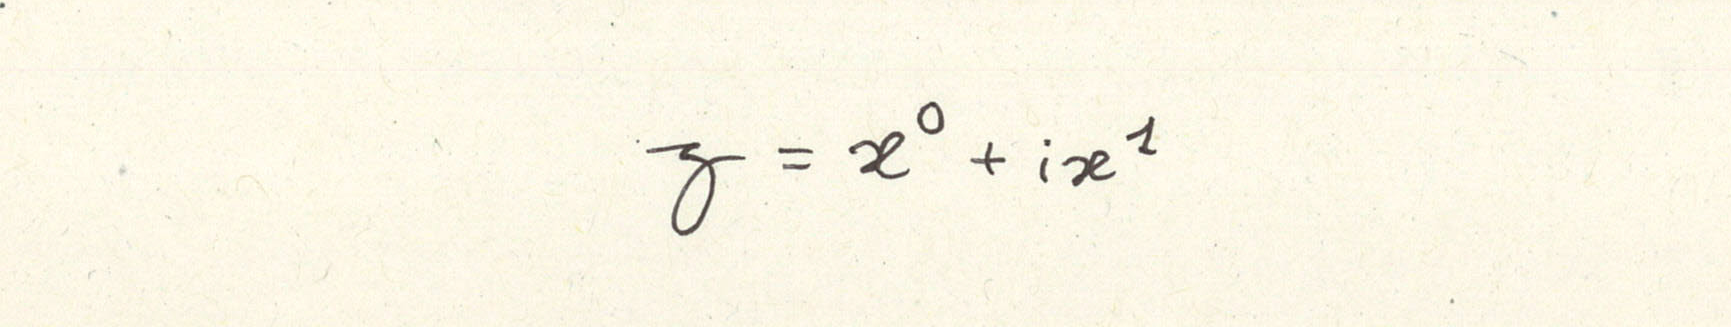 z = x⁰ + ix¹